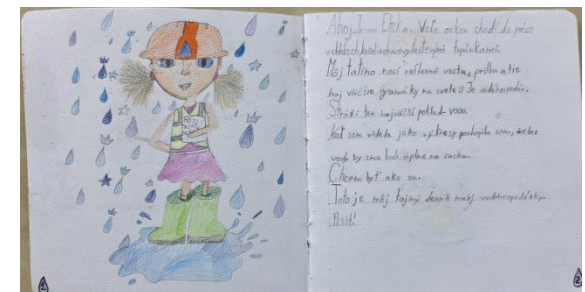 Ahoj. Ja som Eliška. Veľa ockov chodí do práce
v oblekoch, kravatách a s vyleštenými topánkami.
Môj tatino nosí reflexnú vestu, prilbu a tie
naj väčšie gumáky na svete. Je vodohospodár.
Stráži ten najväčší poklad - vodu.
Keď som videla jeho výkresy pochopila som, že bez
vody by sme boli úplne na suchu.
Chcem byť ako on.
Toto je môj tajný denník malej vodohospodárky.
Pssst!
1
2